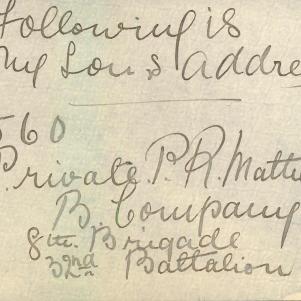 Following is
My Son,s addre
560
Private. P. R. Matth
B. Company
8th. Brigade
32nd Battalion